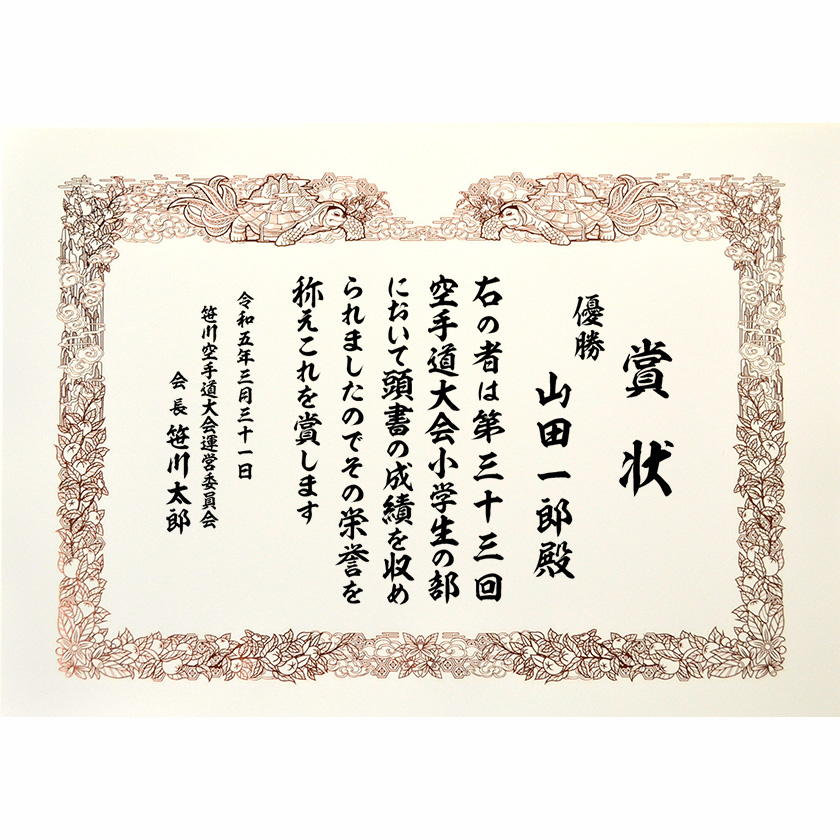 賞状
優勝
山田一郎殿
右の者は第三十三回
空手道大会小学生の部
において頭書の成績を収め
られましたのでその栄誉を
称えこれを賞します
令和五年三月三十一日
笹川空手道大会運営委員会
会長 笹川太郎